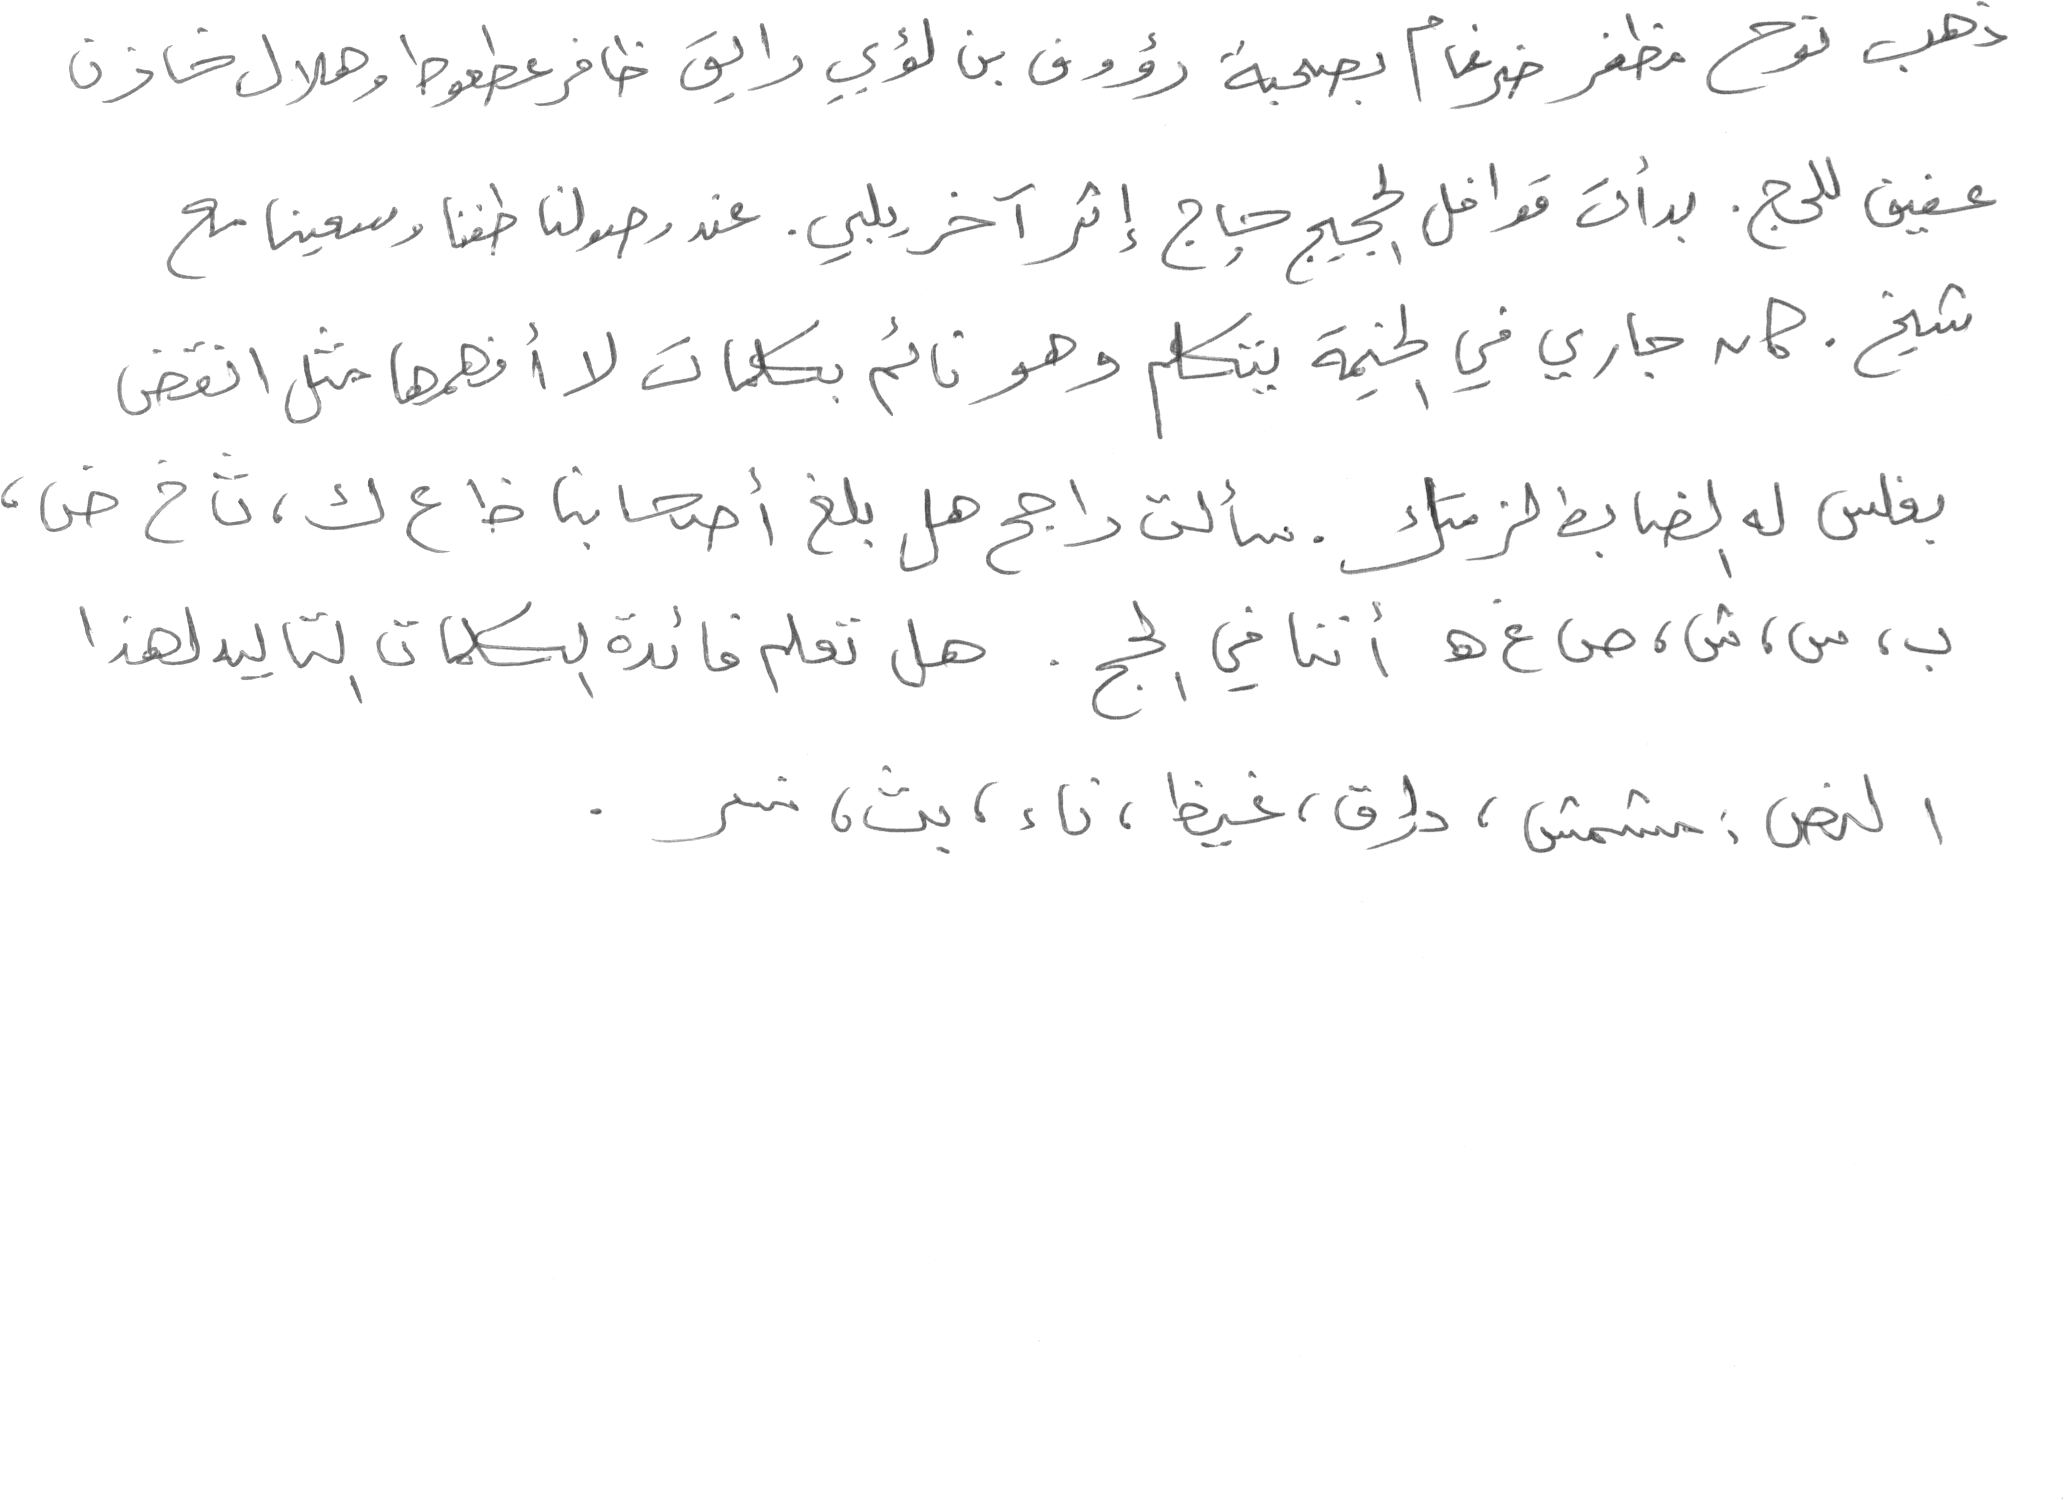 ذهب نوح مظفر ضرغام بصحبة رؤوف بن لؤي رايق ظافر عطعوط وهلال خازن
عفيف للحج. بدأت قوافل الحجيج حاج إثر آخر يلبي. عند وصولنا طفنا وسعينا مع
شيخ. كان جاري في الخيمة يتكلم وهو نائم بكلمات لا أفهمها مثل انقض
بغلس له الضابط لزمتك. سألت راجح هل بلغ أصحابنا ظ ع ك، ث خ ض،
ب، س، ش، ص غ ه أتنا في الحج. هل تعلم فائدة الكلمات التاليه لهذا
النص: مشمش، دراق، غيظ، ناء، بث، نسر.